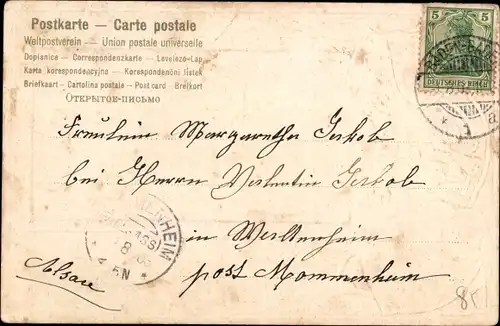 Postkarte — Carte postale
Weltpostverein — Union postale universelle
Dopisnice – Correspondenzkarte – Levelezö-Lap
Karta korespondencyjna – Korespondenční lístek
Briefkart – Cartolina postale – Post card – Brefkort
Открытое-письмо
5 5
DEUTSCHES REICH
BADEN-BADEN
Fräulein Margaretha Jakob
bei Herrn Valentin Jakob
in Waltenheim
post Mommenheim
Elsau
ENHEIM
8
4-5N
a.
85